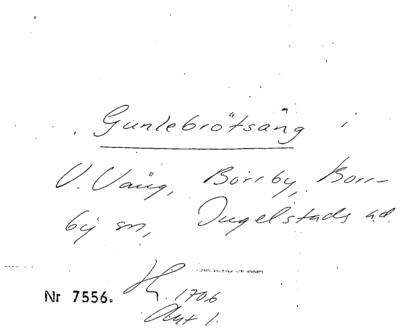 Gunlebrötsäng i
V. Vång, Borrby, Borr-
by sn, Ingelstads hd.
Nr 7556. 1706
Akt 1.